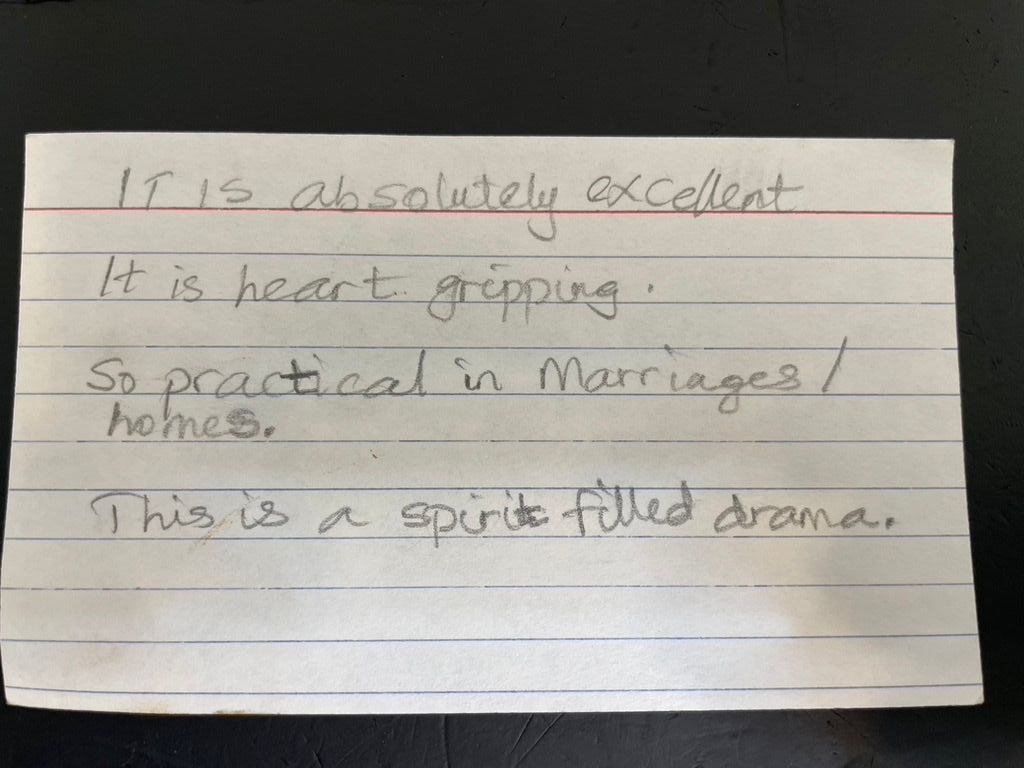 IT IS absolutely excellent
It is heart gripping.
So practical in Marriages/
homes.
This is a spirit filled drama.